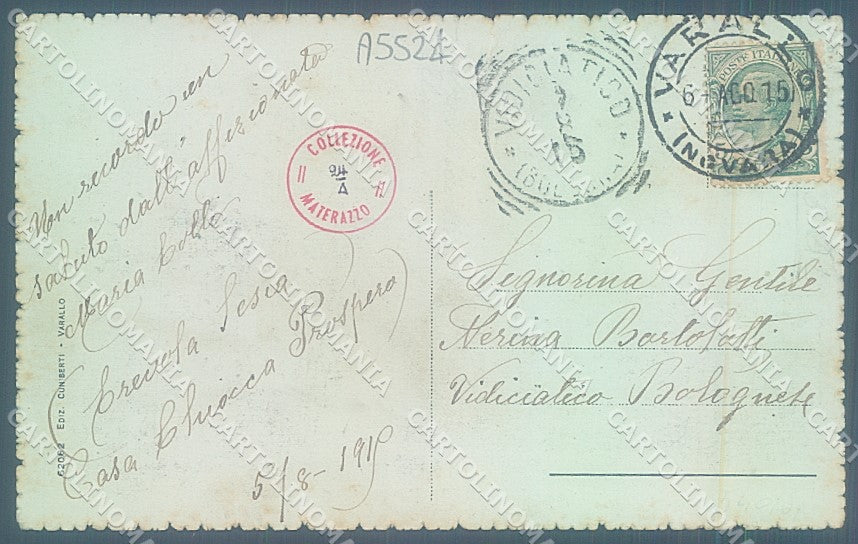 A5524
Un ricordo un
saluto dall' affezionata
Maria Collo
Crevola Sesia
Casa Chiocca Prospero
5/8-1915
62062 EDIZ. CUNIBERTI - VARALLO
COLLEZIONE
94
A
MATERAZZO
VIDICIATICO
15
VARALLO
6 - AGO 15
(NOVARA)
POSTE ITALIANE
Signorina Gentile
Nerina Bartolotti
Vidiciatico Bolognese
CARTOLINOMANIA